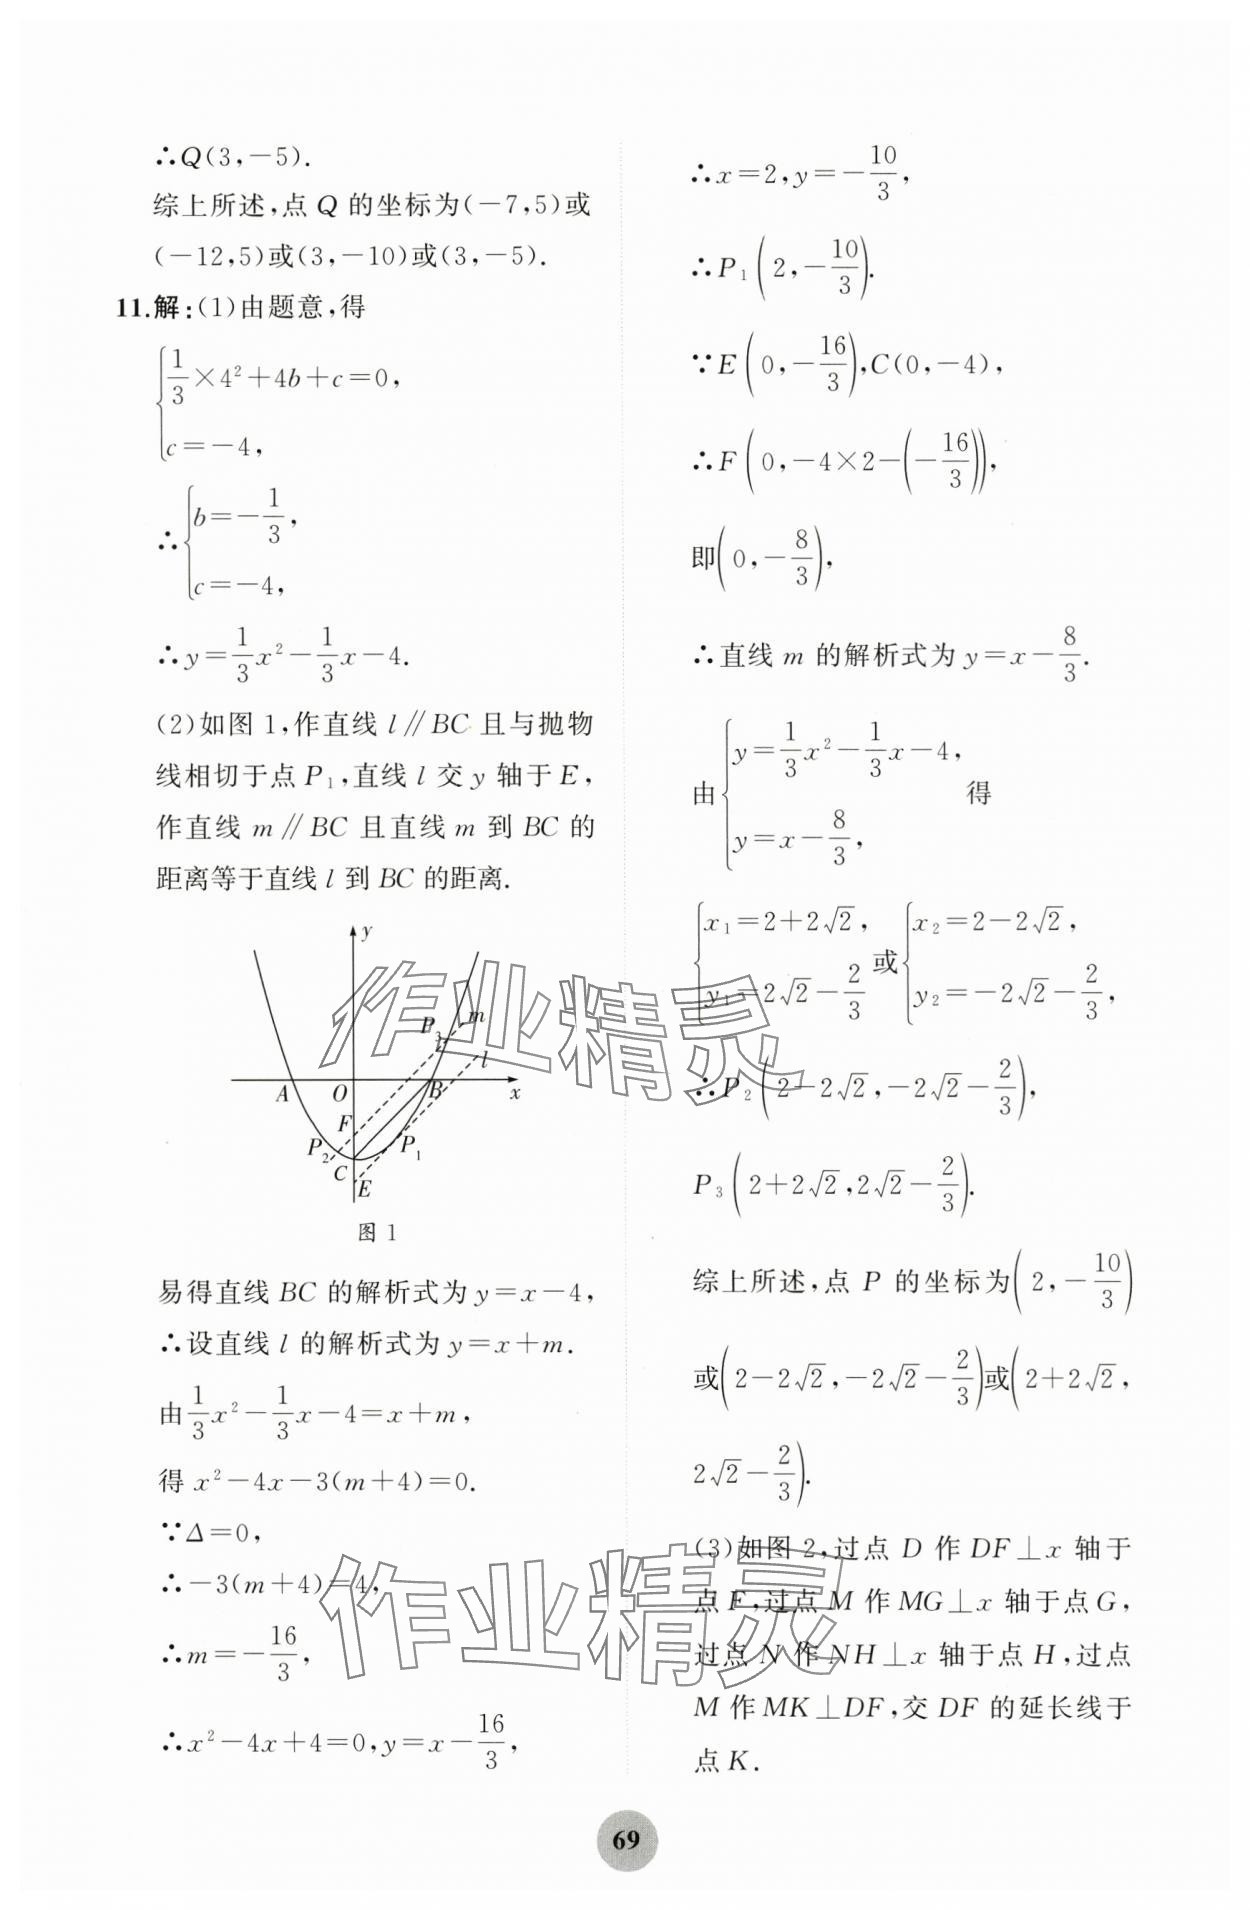 ∴Q(3,-5).
综上所述,点 Q 的坐标为(-7,5)或
(-12,5)或(3,-10)或(3,-5).
11.解:(1)由题意,得
{1/3×4²+4b+c=0,
c=-4,
∴{b=-1/3,
c=-4,
∴y=1/3x²-1/3x-4.
(2)如图 1,作直线 l∥BC 且与抛物
线相切于点 P₁,直线 l 交 y 轴于 E,
作直线 m∥BC 且直线 m 到 BC 的
距离等于直线 l 到 BC 的距离.
y
P₃
m
l
A
O
B
x
F
P₂
P₁
C
E
图 1
易得直线 BC 的解析式为 y=x-4,
∴设直线 l 的解析式为 y=x+m.
由1/3x²-1/3x-4=x+m,
得 x²-4x-3(m+4)=0.
∵Δ=0,
∴-3(m+4)=4,
∴m=-16/3,
∴x²-4x+4=0,y=x-16/3,
∴x=2,y=-10/3,
∴P₁(2,-10/3).
∵E(0,-16/3),C(0,-4),
∴F(0,-4×2-(-16/3)),
即(0,-8/3),
∴直线 m 的解析式为 y=x-8/3.
由{y=1/3x²-1/3x-4,
y=x-8/3,
得
{x₁=2+2√2,
y₁=2√2-2/3
或{x₂=2-2√2,
y₂=-2√2-2/3,
∴P₂(2-2√2,-2√2-2/3),
P₃(2+2√2,2√2-2/3).
综上所述,点 P 的坐标为(2,-10/3)
或(2-2√2,-2√2-2/3)或(2+2√2,
2√2-2/3).
(3)如图 2,过点 D 作 DF⊥x 轴于
点 F,过点 M 作 MG⊥x 轴于点 G,
过点 N 作 NH⊥x 轴于点 H,过点
M 作 MK⊥DF,交 DF 的延长线于
点 K.
作业精灵
作业精灵
69